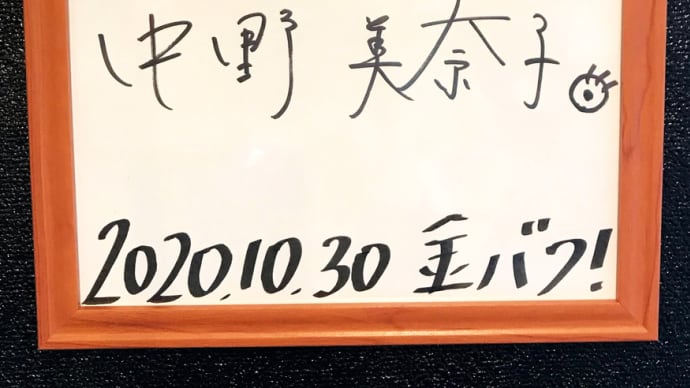 中野 美奈子
2020.10.30 金バク!